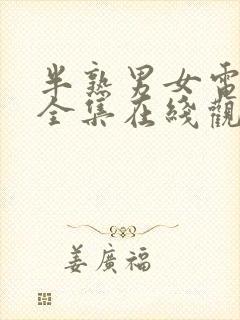 半熟男女電
全集在綫觀
姜廣福